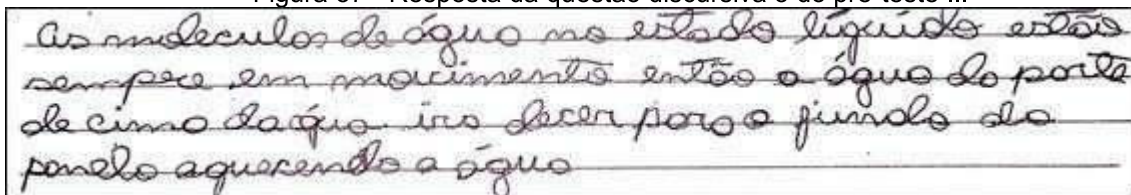 As moleculas de água no estado líquido estão
sempre em movimento então a água da parte
de cima da água ira decer para o fundo da
panela aquecendo a água